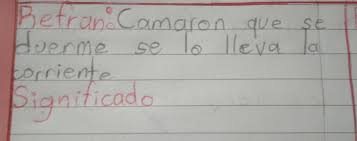 Refran: Camaron que se
duerme se lo lleva la
corriente
Significado